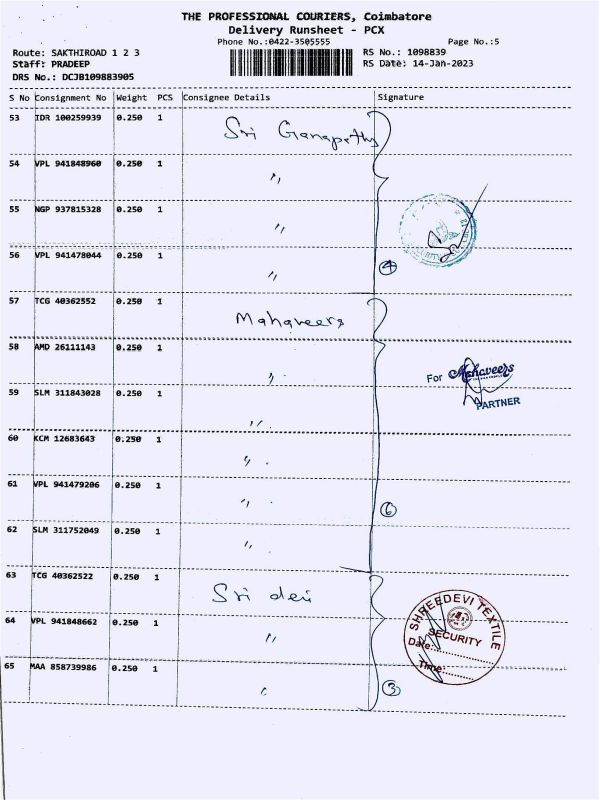 THE PROFESSIONAL COURIERS, Coimbatore
Delivery Runsheet - PCX
Phone No.:0422-3505555
Page No.:5
Route: SAKTHIROAD 1 2 3
RS No.: 1098839
Staff: PRADEEP
RS Date: 14-Jan-2023
DRS No.: DCJB109883905
S No Consignment No Weight PCS Consignee Details Signature
53 IDR 100259939 0.250 1 Sri Ganapathy
54 VPL 941848960 0.250 1 〃
55 NGP 937815328 0.250 1 〃
56 VPL 941478044 0.250 1 〃 4
57 TCG 40362552 0.250 1 Mahaveers
58 AMD 26111143 0.250 1 〃
For Mahaveers
PARTNER
59 SLM 311843028 0.250 1 〃
60 KCM 12683643 0.250 1 〃
61 VPL 941479206 0.250 1 〃 6
62 SLM 311752049 0.250 1 〃
63 TCG 40362522 0.250 1 Sri devi
64 VPL 941848662 0.250 1 〃
SHREEDEVI TEXTILE
SECURITY
Date:
Time:
65 MAA 858739986 0.250 1 〃 3